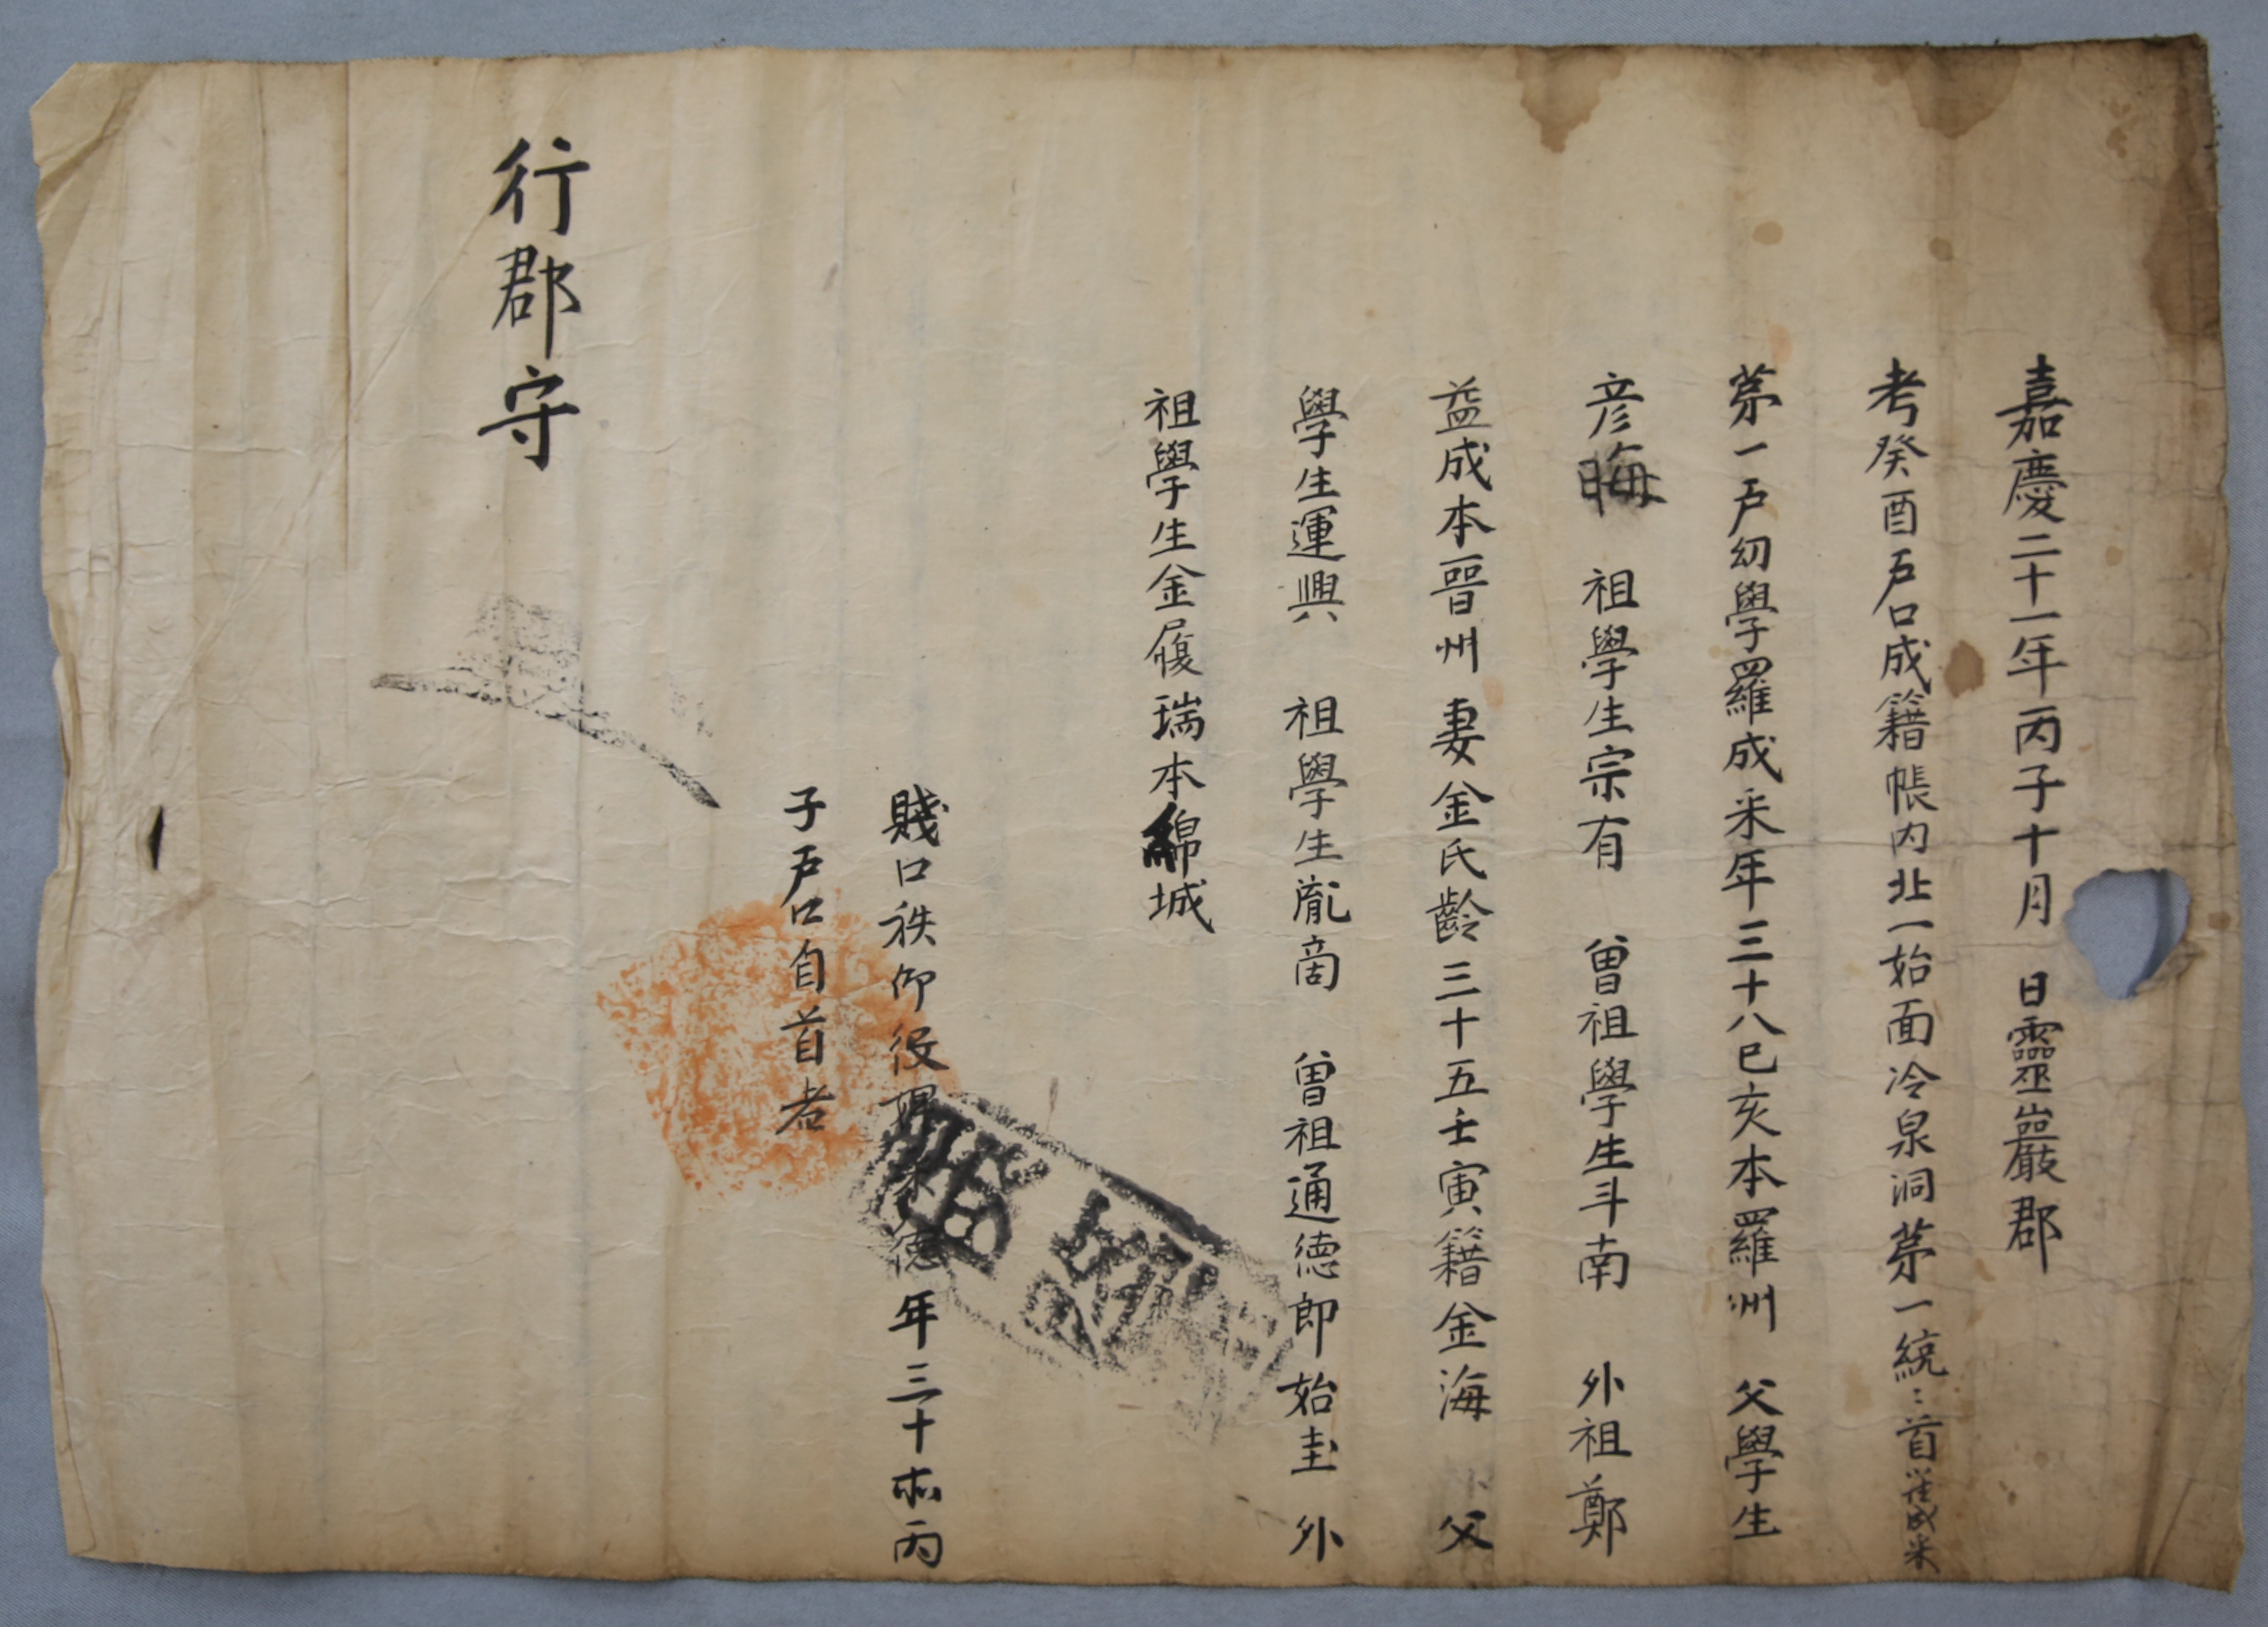 嘉慶二十一年丙子十月 日靈巖郡
考癸酉戶口成籍帳內北一始面冷泉洞苐一統〻首羅成采
苐一戶幼學羅成采年三十八己亥本羅州 父學生
彦晦 祖學生宗有 曾祖學生斗南 外祖鄭
益成本晋州 妻金氏齡三十五壬寅籍金海 父
學生運興 祖學生胤啇 曾祖通德郎始圭 外
祖學生金履瑞本綿城
賤口秩仰役 德年三十 丙
子戶口自首者
行郡守